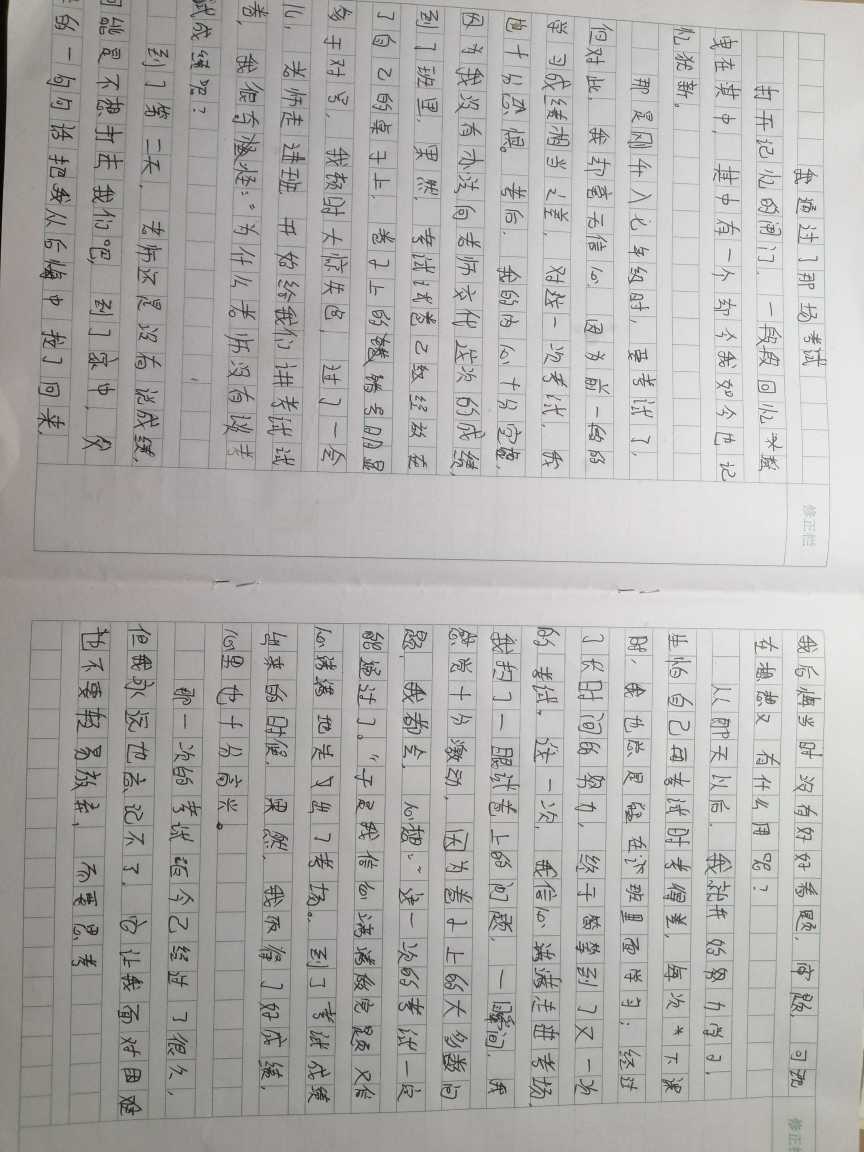 我通过了那场考试
打开记忆的闸门，一段段回忆
曳在其中，其中有一个却令我如今也记
忆犹新。
那是刚升入七年级时，要考试了，
但对此，我却毫无信心，因为前一段的
学习成绩相当之差，对这一次考试，我
十分恐惧。考后，我的内心十分空落，
因为我没有办法向老师交代这次的成绩，
到了班里，果然，考试试卷已经放在
了自己的桌子上，卷子上的错号明显
多于对号，我顿时大惊失色，过了一会
儿，老师走进班开始给我们讲考试试
卷，我很奇怪：“为什么老师没有谈考
试成绩呢？
到了第二天，老师还是没有说成绩，
可能是不想打击我们吧，到了家中，父
的一句句话把我从后悔中拉了回来，
我后悔当时没有好好看题，审题，可现
在想想又有什么用呢？
从那天以后，我就开始努力学习，
生怕自己再考试时考得差，每次下课
时，我也总是留在班里面学习；经过
了长时间的努力，终于等到了又一次
的考试，这一次，我信心满满走进考场，
我扫了一眼试卷上的问题，一瞬间，我
感觉十分激动，因为卷子上的大多数问
题，我都会，心想：“这一次的考试一定
能通过了。”于是我信心满满做完题又信
心满满地走出了考场。到了考试成绩
出来的时候，果然，我取得了好成绩，
心里也十分高兴。
那一次的考试距今已经过了很久，
但我永远也忘记不了，它让我面对困难
也不要轻易放弃，而要思考
修正栏
修正